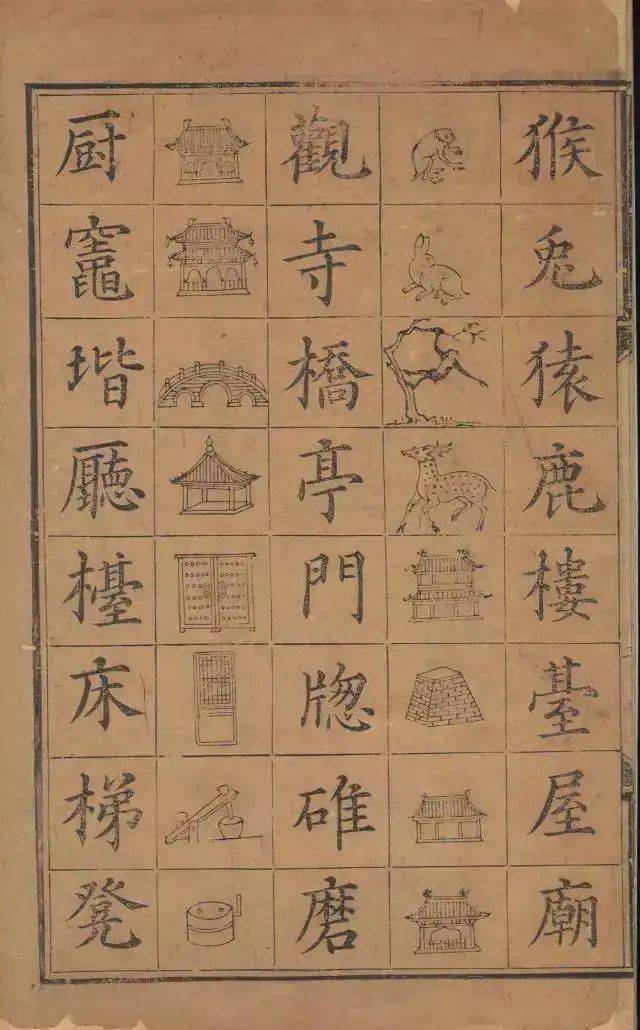 猴兔猿鹿樓臺屋廟
觀寺橋亭門牎碓磨
厨竈堦廳檯床梯凳